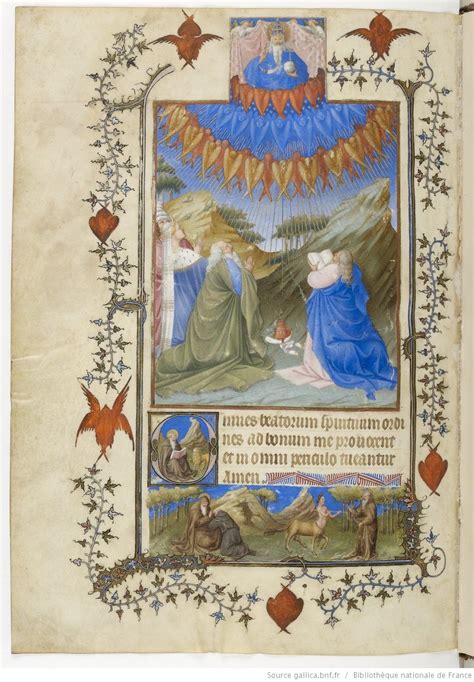 Omnes beatorum spirituum ordi
nes ad bonum me
et in omni periculo tueantur
Amen
Source gallica.bnf.fr / Bibliothèque nationale de France